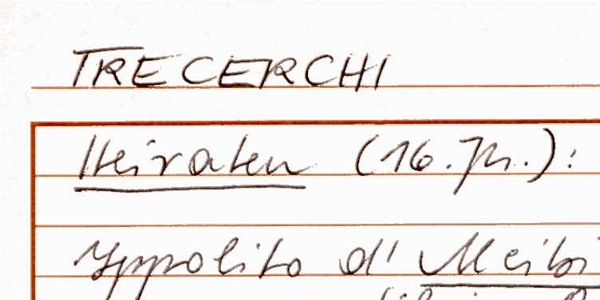 TRECERCHI
Heiraten (16. Jh.):
Yppolito d'